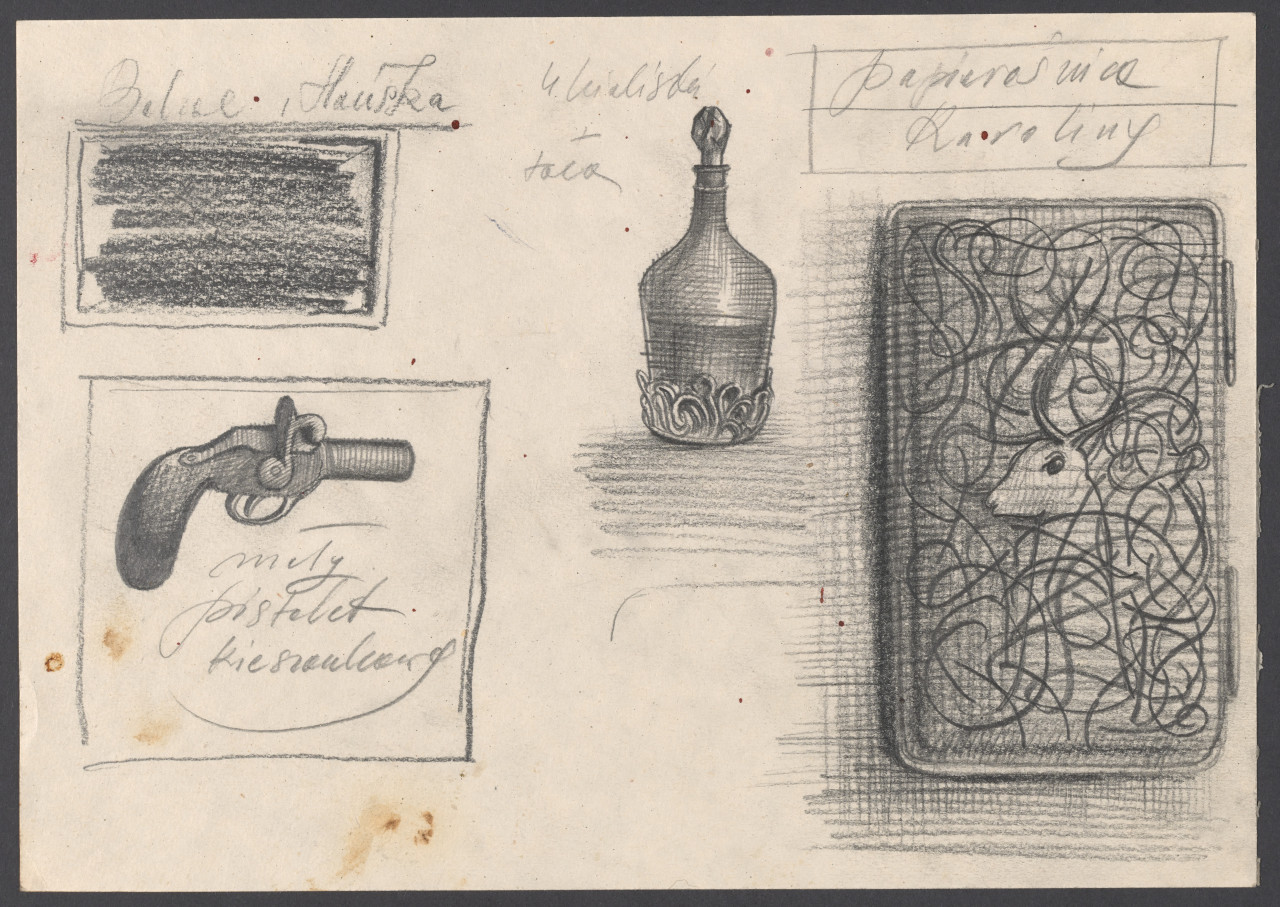 Balzac, Hańska
4 kieliszki
+
taca
papierośnica
Karoliny
mały
pistolet
kieszonkowy